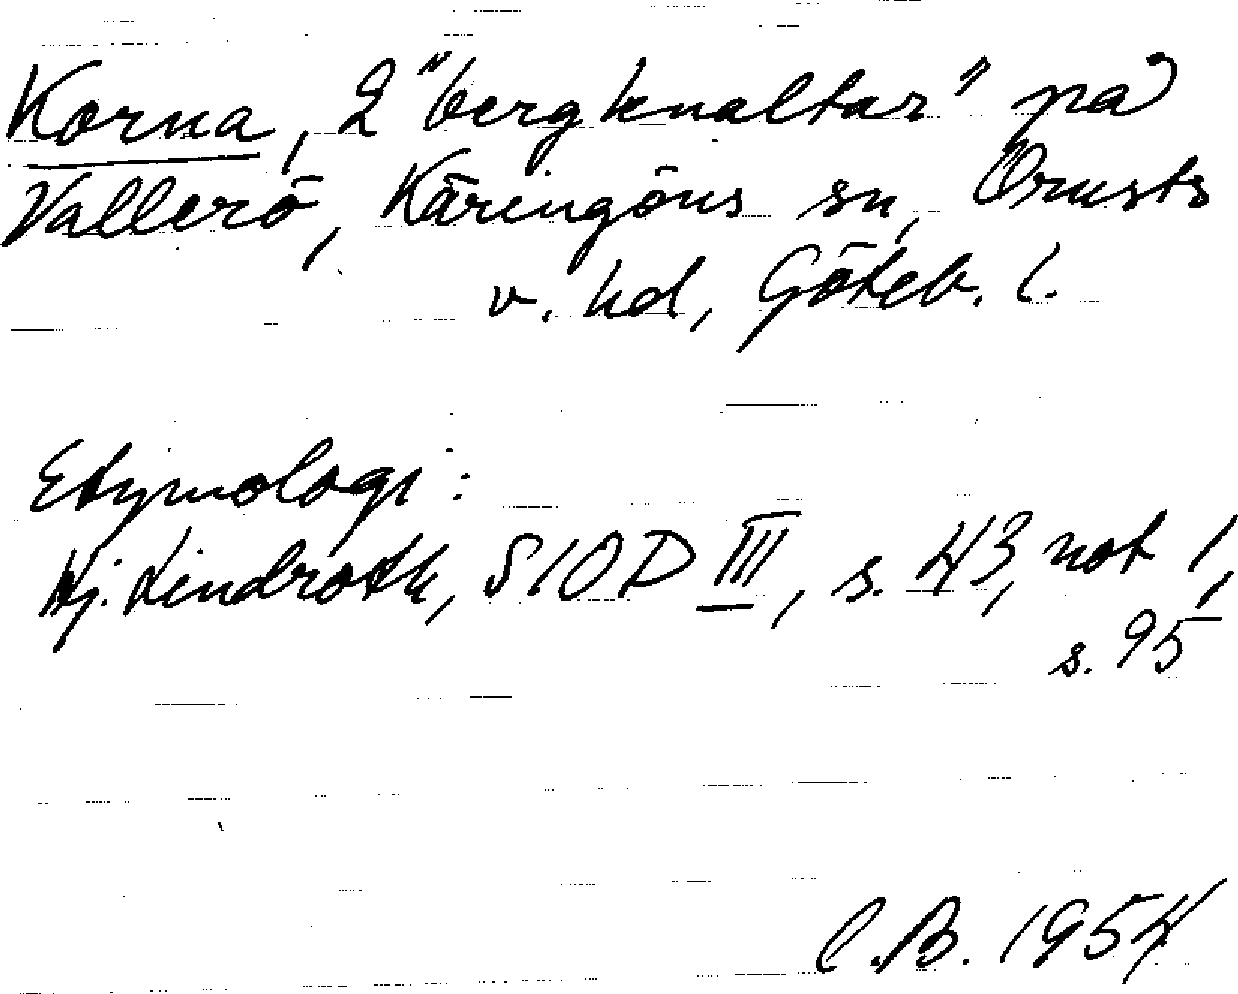 Korna, 2 "bergknaltar" på
Vallerö, Käringöns sn, Orusts
v. hd, Göteb. l.
Etymologi:
Hj. Lindroth, SIOD III, s. 43, not 1,
s. 95
C.B. 1954